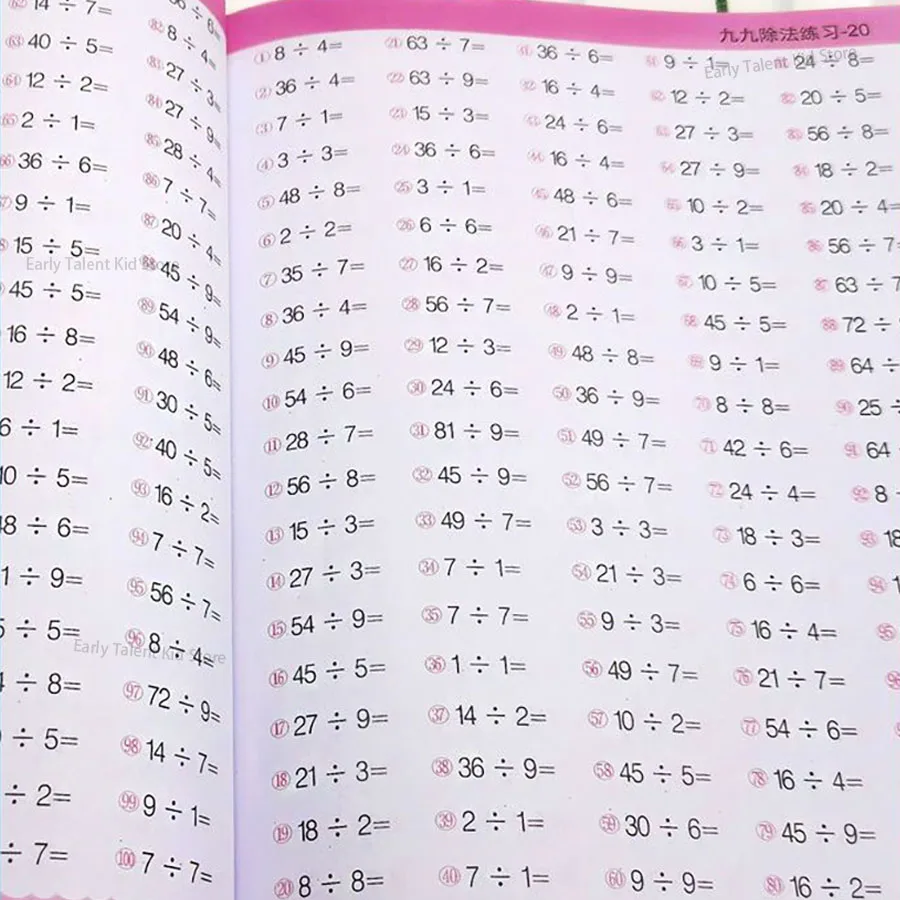 (62) 14 ÷ 7=
(63) 40 ÷ 5=
(64) 12 ÷ 2=
(65) 2 ÷ 1=
(66) 36 ÷ 6=
9 ÷ 1=
15 ÷ 5=
45 ÷ 5=
16 ÷ 8=
12 ÷ 2=
6 ÷ 1=
10 ÷ 5=
48 ÷ 6=
1 ÷ 9=
5 ÷ 5=
÷ 8=
÷ 5=
÷ 2=
÷ 7=
÷ 6=
(82) 8 ÷ 4=
(83) 27 ÷ 3=
(84) 27 ÷ 9=
(85) 28 ÷ 4=
(86) 7 ÷ 7=
(87) 20 ÷ 4=
(88) 45 ÷ 9=
(89) 54 ÷ 9=
(90) 48 ÷ 6=
(91) 30 ÷ 5=
(92) 40 ÷ 5=
(93) 16 ÷ 2=
(94) 7 ÷ 7=
(95) 56 ÷ 7=
(96) 8 ÷ 4=
(97) 72 ÷ 9=
(98) 14 ÷ 7=
(99) 9 ÷ 1=
(100) 7 ÷ 7=
Early Talent Kid Store
Early Talent Kid Store
九九除法练习-20
Early Talent Kid Store
(1) 8 ÷ 4=
(2) 36 ÷ 4=
(3) 7 ÷ 1=
(4) 3 ÷ 3=
(5) 48 ÷ 8=
(6) 2 ÷ 2=
(7) 35 ÷ 7=
(8) 36 ÷ 4=
(9) 45 ÷ 9=
(10) 54 ÷ 6=
(11) 28 ÷ 7=
(12) 56 ÷ 8=
(13) 15 ÷ 3=
(14) 27 ÷ 3=
(15) 54 ÷ 9=
(16) 45 ÷ 5=
(17) 27 ÷ 9=
(18) 21 ÷ 3=
(19) 18 ÷ 2=
(20) 8 ÷ 8=
(21) 63 ÷ 7=
(22) 63 ÷ 9=
(23) 15 ÷ 3=
(24) 36 ÷ 6=
(25) 3 ÷ 1=
(26) 6 ÷ 6=
(27) 16 ÷ 2=
(28) 56 ÷ 7=
(29) 12 ÷ 3=
(30) 24 ÷ 6=
(31) 81 ÷ 9=
(32) 45 ÷ 9=
(33) 49 ÷ 7=
(34) 7 ÷ 1=
(35) 7 ÷ 7=
(36) 1 ÷ 1=
(37) 14 ÷ 2=
(38) 36 ÷ 9=
(39) 2 ÷ 1=
(40) 7 ÷ 1=
(41) 36 ÷ 6=
(42) 16 ÷ 4=
(43) 24 ÷ 6=
(44) 16 ÷ 4=
(45) 48 ÷ 6=
(46) 21 ÷ 7=
(47) 9 ÷ 9=
(48) 2 ÷ 1=
(49) 48 ÷ 8=
(50) 36 ÷ 9=
(51) 49 ÷ 7=
(52) 56 ÷ 7=
(53) 3 ÷ 3=
(54) 21 ÷ 3=
(55) 9 ÷ 3=
(56) 49 ÷ 7=
(57) 10 ÷ 2=
(58) 45 ÷ 5=
(59) 30 ÷ 6=
(60) 9 ÷ 9=
(61) 9 ÷ 1=
(62) 12 ÷ 2=
(63) 27 ÷ 3=
(64) 27 ÷ 9=
(65) 10 ÷ 2=
(66) 3 ÷ 1=
(67) 10 ÷ 5=
(68) 45 ÷ 5=
(69) 9 ÷ 1=
(70) 8 ÷ 8=
(71) 42 ÷ 6=
(72) 24 ÷ 4=
(73) 18 ÷ 3=
(74) 6 ÷ 6=
(75) 16 ÷ 4=
(76) 21 ÷ 7=
(77) 54 ÷ 6=
(78) 16 ÷ 4=
(79) 45 ÷ 9=
(80) 16 ÷ 2=
(81) 24 ÷ 8=
(82) 20 ÷ 5=
(83) 56 ÷ 8=
(84) 18 ÷ 2=
(85) 20 ÷ 4=
(86) 56 ÷ 7=
(87) 63 ÷ 7
(88) 72 ÷
(89) 64 ÷
(90) 25 ÷
(91) 64
(92) 8
(93) 18
(94) 1
(95)